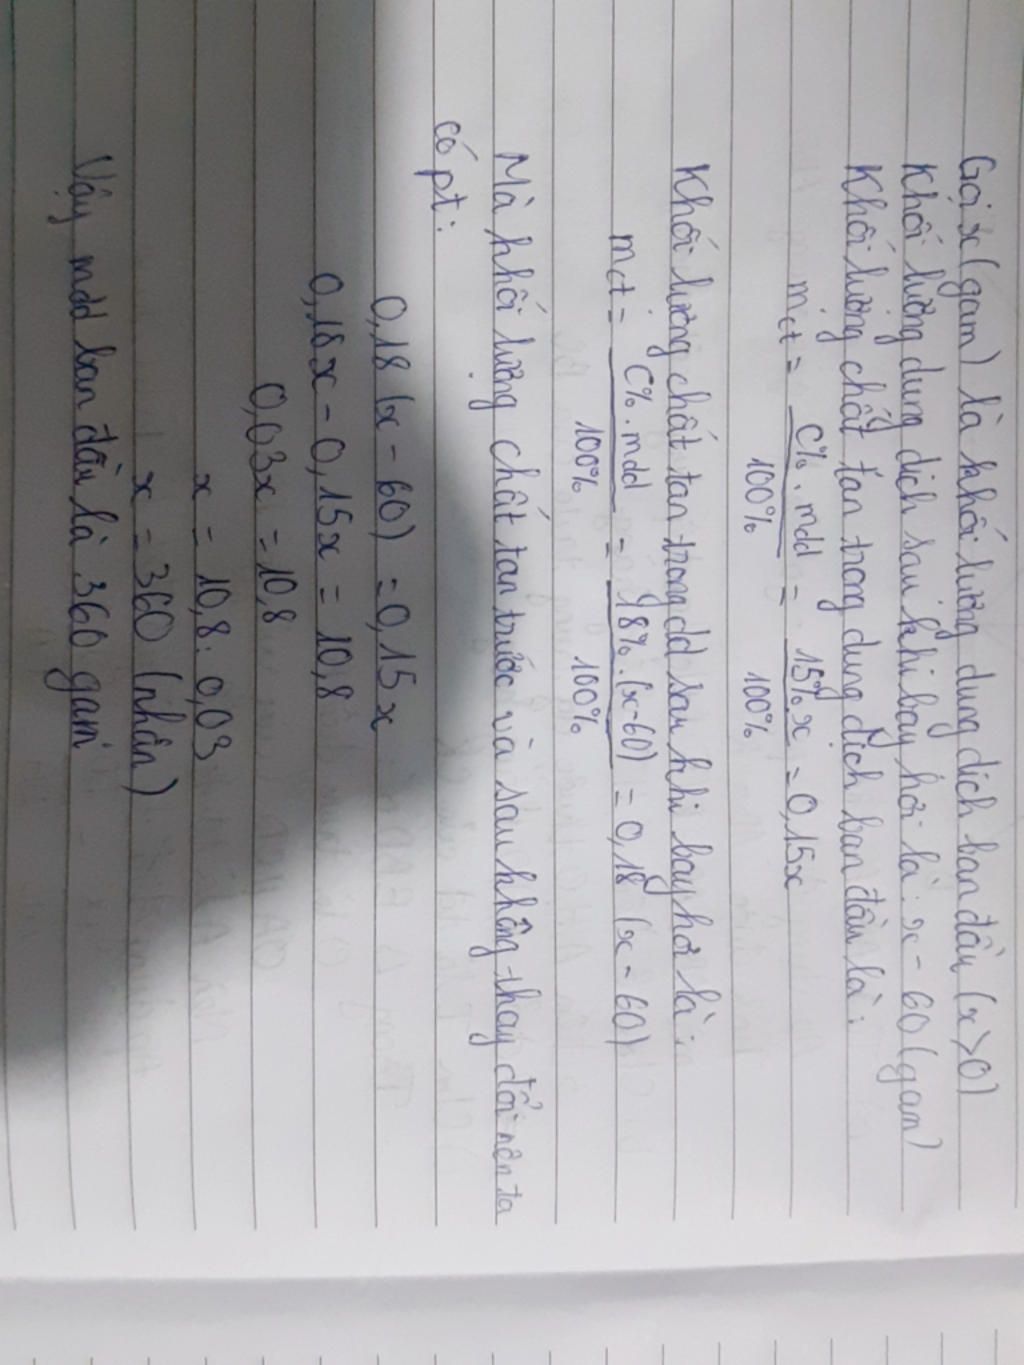 Gọi x (gam) là khối lượng dung dịch ban đầu (x > 0)
Khối lượng dung dịch sau khi bay hơi là: x - 60 (gam)
Khối lượng chất tan trong dung dịch ban đầu là:
mct = C%.mdd / 100% = 15%.x / 100% = 0,15x
Khối lượng chất tan trong dd sau khi bay hơi là:
mct = C%.mdd / 100% = 18%.(x-60) / 100% = 0,18 (x - 60)
Mà khối lượng chất tan trước và sau không thay đổi nên ta
có pt:
0,18 (x - 60) = 0,15x
0,18x - 0,15x = 10,8
0,03x = 10,8
x = 10,8 : 0,03
x = 360 (nhận)
Vậy mdd ban đầu là 360 gam